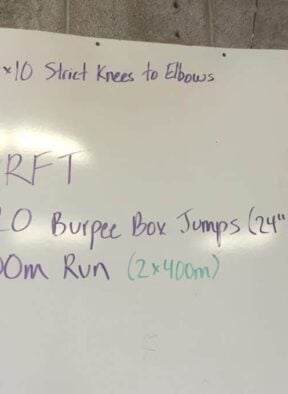 x10 Strict Knees to Elbows
RFT
0 Burpee Box Jumps (24"
0m Run (2x400m)